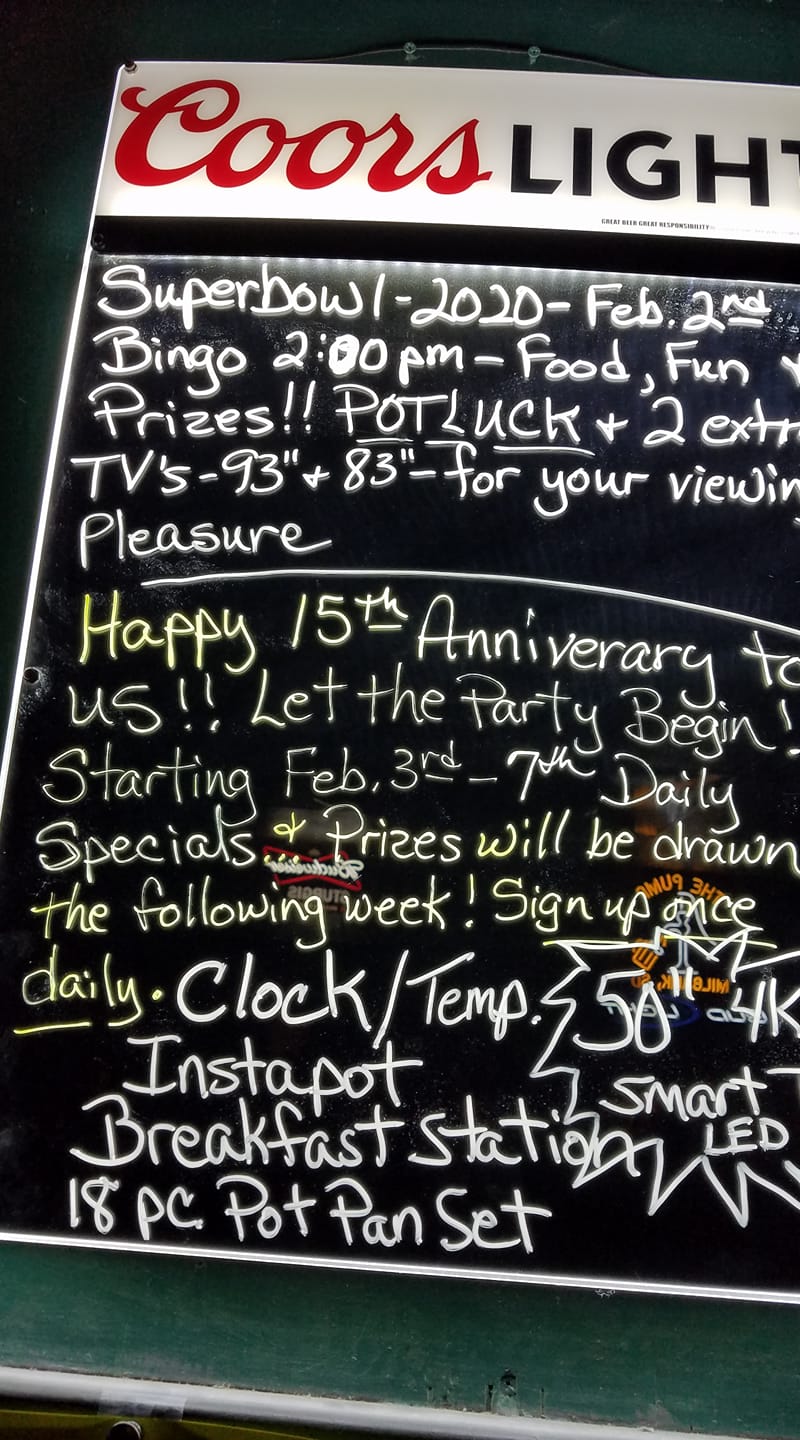 Coors LIGHT
GREAT BEER GREAT RESPONSIBILITY
Superbowl-2020-Feb. 2nd
Bingo 2:00 pm - Food, Fun +
Prizes!! POTLUCK + 2 extr
TV's-93"+ 83"- for your viewin
Pleasure
Happy 15th Anniverary to
us!! Let the Party Begin!
Starting Feb. 3rd - 7th Daily
Specials & Prizes will be drawn
the following week! Sign up once
daily. Clock/Temp. 50" 4K
Instapot Smart T
Breakfast Station LED
18 pc Pot Pan Set
Budweiser
STURGIS
THE PUMP
MILBANK, SD
BUD LIGHT